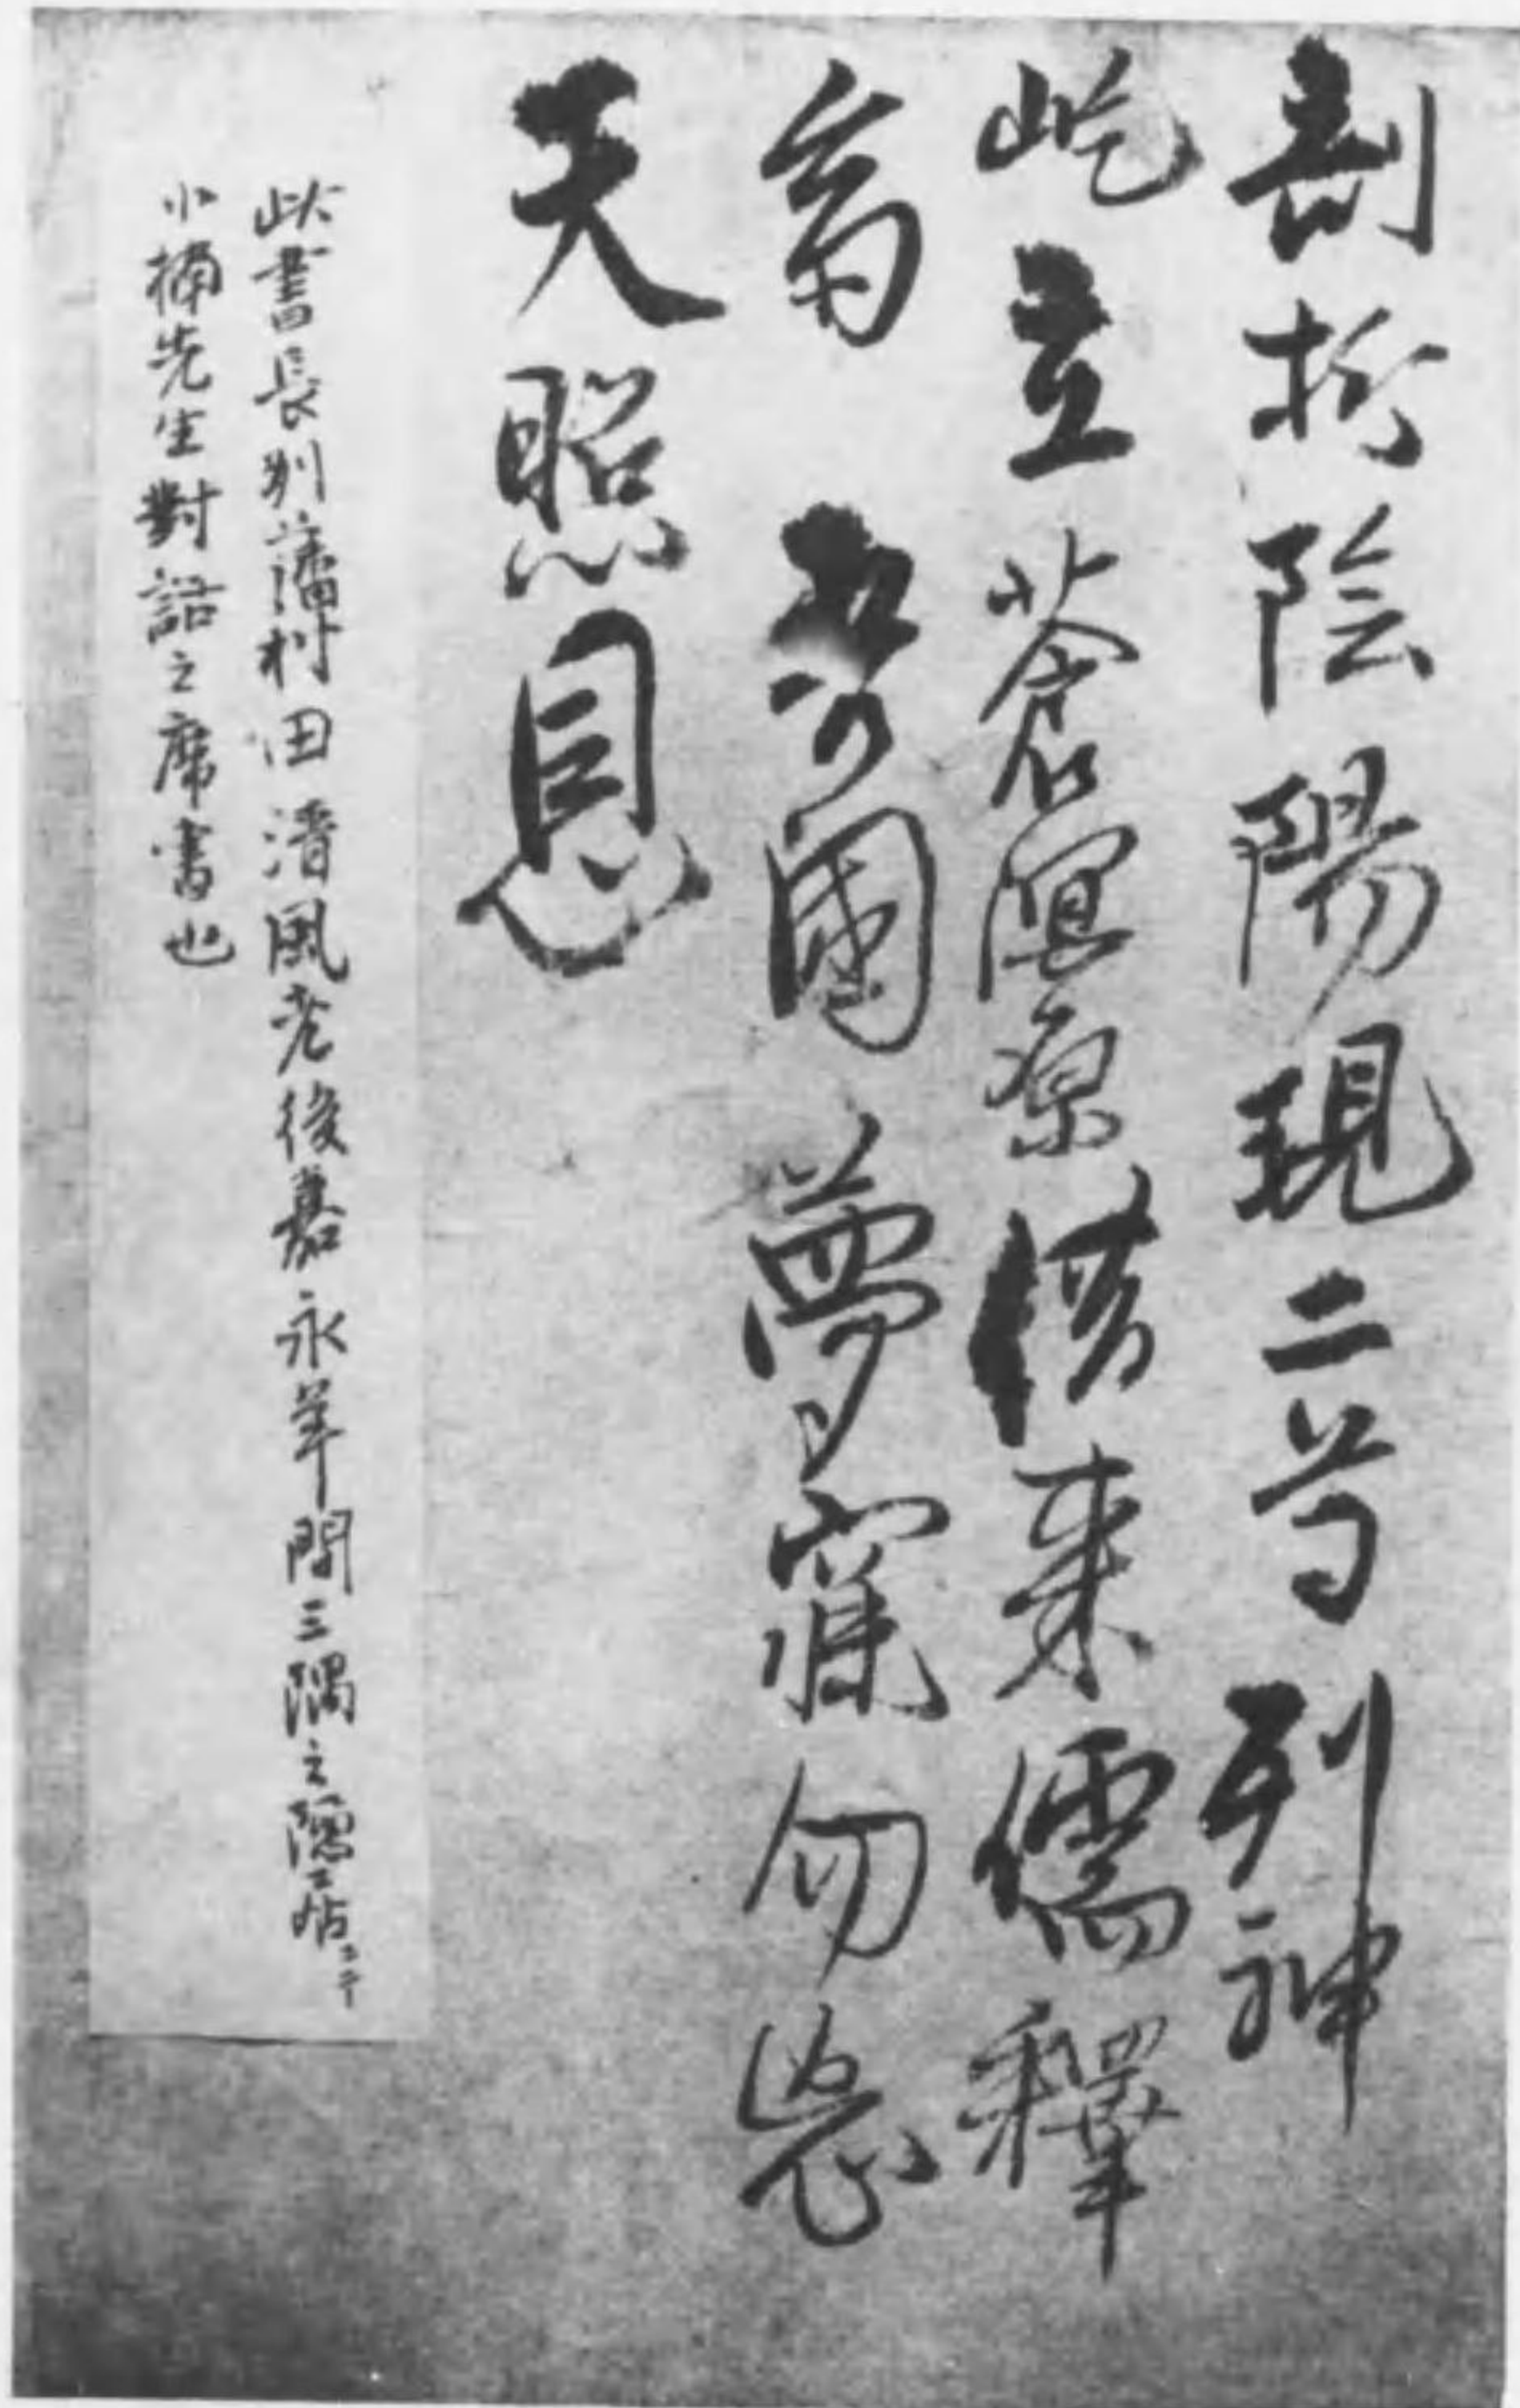 剖析陰陽現二尊列神
屹立蒼溟原来儒釋
吾國夢寐勿忘
天照恩
此書長州藩村田清風老後嘉永年間三隅之隠居ニテ
小楠先生對話之席書也